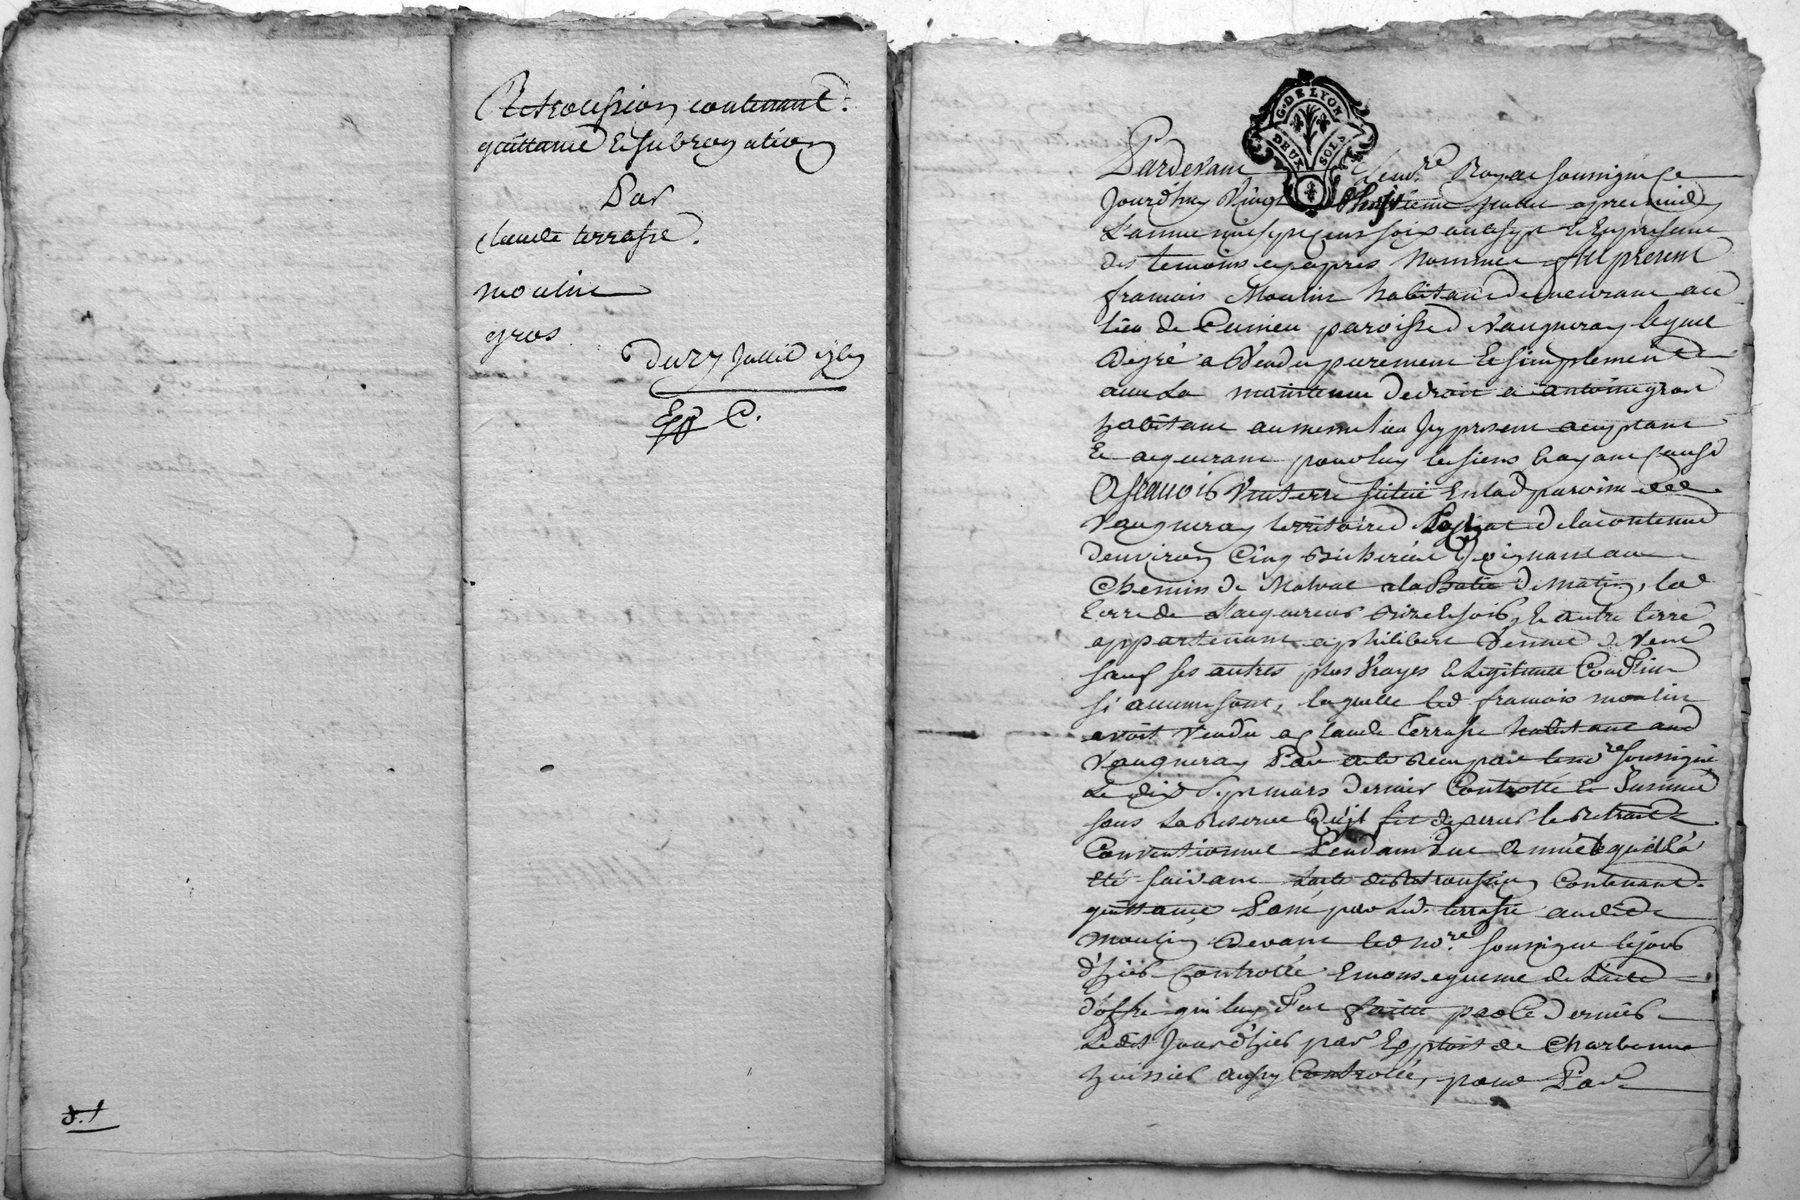 Retrocession contenant
quittance & subrogation
Par
claude terrasse.
moulin
gros
Du 27 Juillet 1767
Exp C.
8.1
G. DE LYON
DEUX SOLS
Pardevant le no.re Royal soussigné ce
jourdhuy vingt huitieme juillet apres midy
L'année mil sept cens soixante sept & En presence
des temoins cy apres Nommés fut present
francois Moulin habitant demeurant au
lieu de paroisse de Vaugneray lequel
de gré a Vendu purement & simplement
avec La maintenue de droit a antoine gros
habitant au meme lieu Icy present acceptant
& acquerant pour luy les siens & ayant cause
A scavoir Une terre située En lad paroisse de
Vaugneray territoire de la contenue
d'environ Cinq Bicherées Joignant au
Chemin de Malval a la de Matin, la
terre de L'acquereur bize & soir, & autre terre
appartenant a philibert de Vent
sauf ses autres plus Vrayes & Legitimes Confins
si aucuns sont, laquelle led francois moulin
avoit Vendu a Claude Terrasse habitant aud
Vaugneray Par acte Recu par led no.re soussigné
Le dix Sept mars dernier Controllé & Insinué
sous La Reserve qu'il fit d'exercer le Retrait
Conventionnel Pendant Une Année qu'il a
été suivant Lacte de Retrocession Contenant
quittance Passé par led. terrasse aud
Moulin devant led no.re soussigné le jour
d'hier Controllé En consequence de L'acte
d'offre qui luy fut faitte par Ce dernier
Ledit Jour d'hier par Exploit de Charbonne
huissier aussy Controllé, pour Par